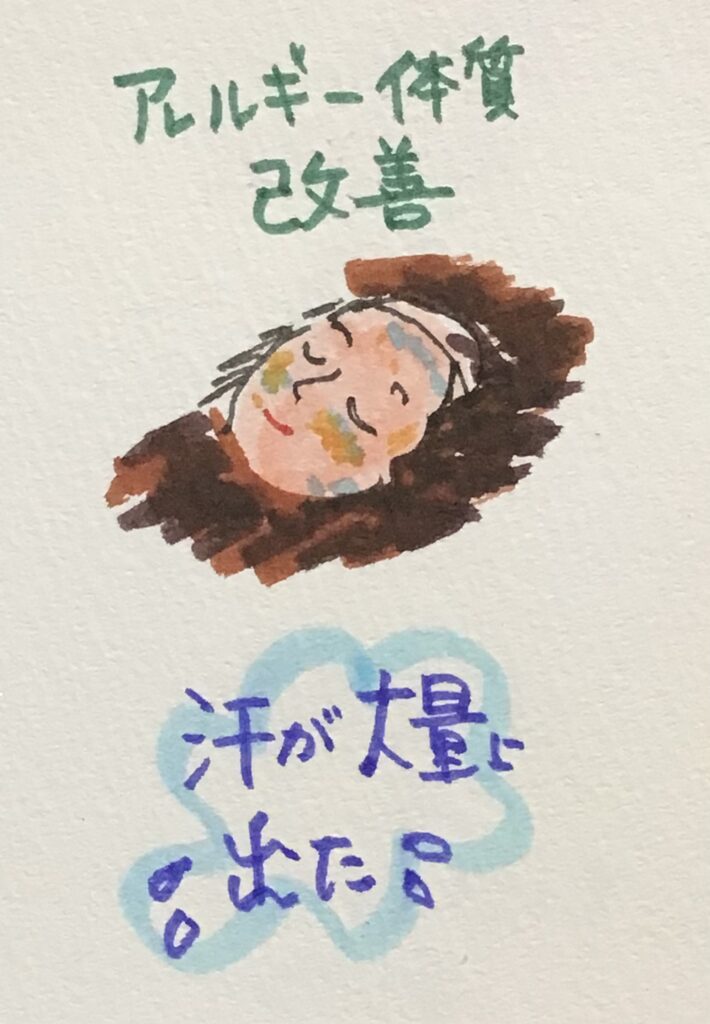 アレルギー体質
改善
汗が大量に
出た